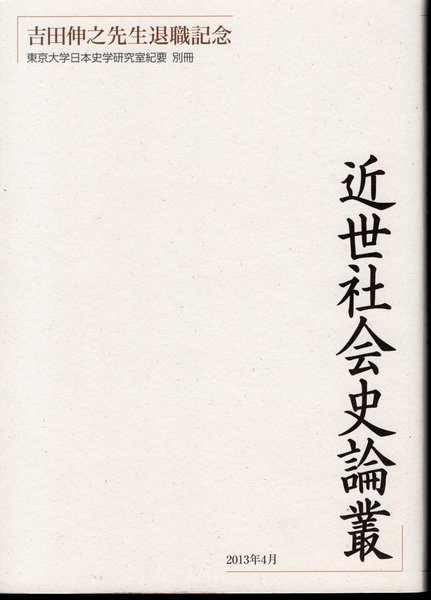 吉田伸之先生退職記念
東京大学日本史学研究室紀要 別冊
近世社会史論叢
2013年4月